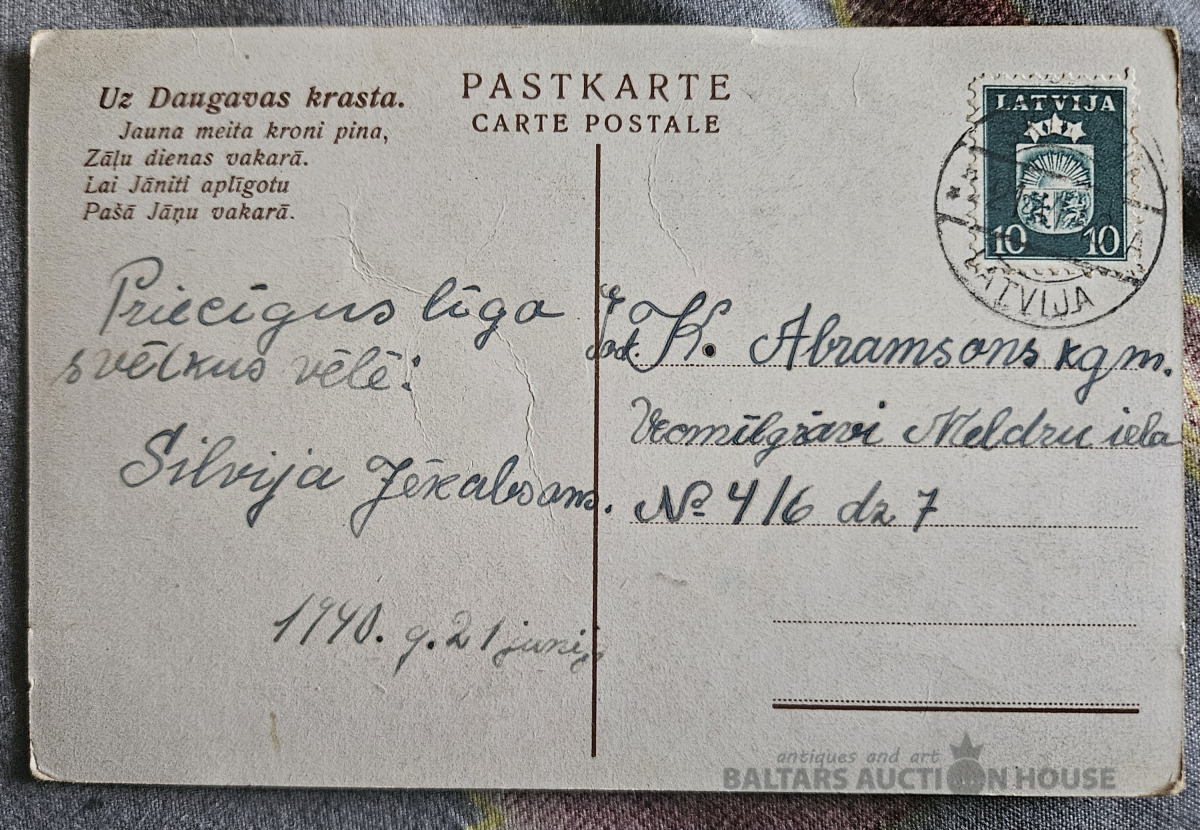 Uz Daugavas krasta.
Jauna meita kroni pina,
Zāļu dienas vakarā.
Lai Jāniti aplīgotu
Pašā Jāņu vakarā.
PASTKARTE
CARTE POSTALE
LATVIJA
10 10
LATVIJA
Priecīgus līga
svētkus vēlē:
Silvija Jēkabsons.
1940. g. 21 junijs
K. Abramsons kgm.
Vecmīlgrāvi Meldru iela
№ 4/6 dz 7
antiques and art
BALTARS AUCTION HOUSE